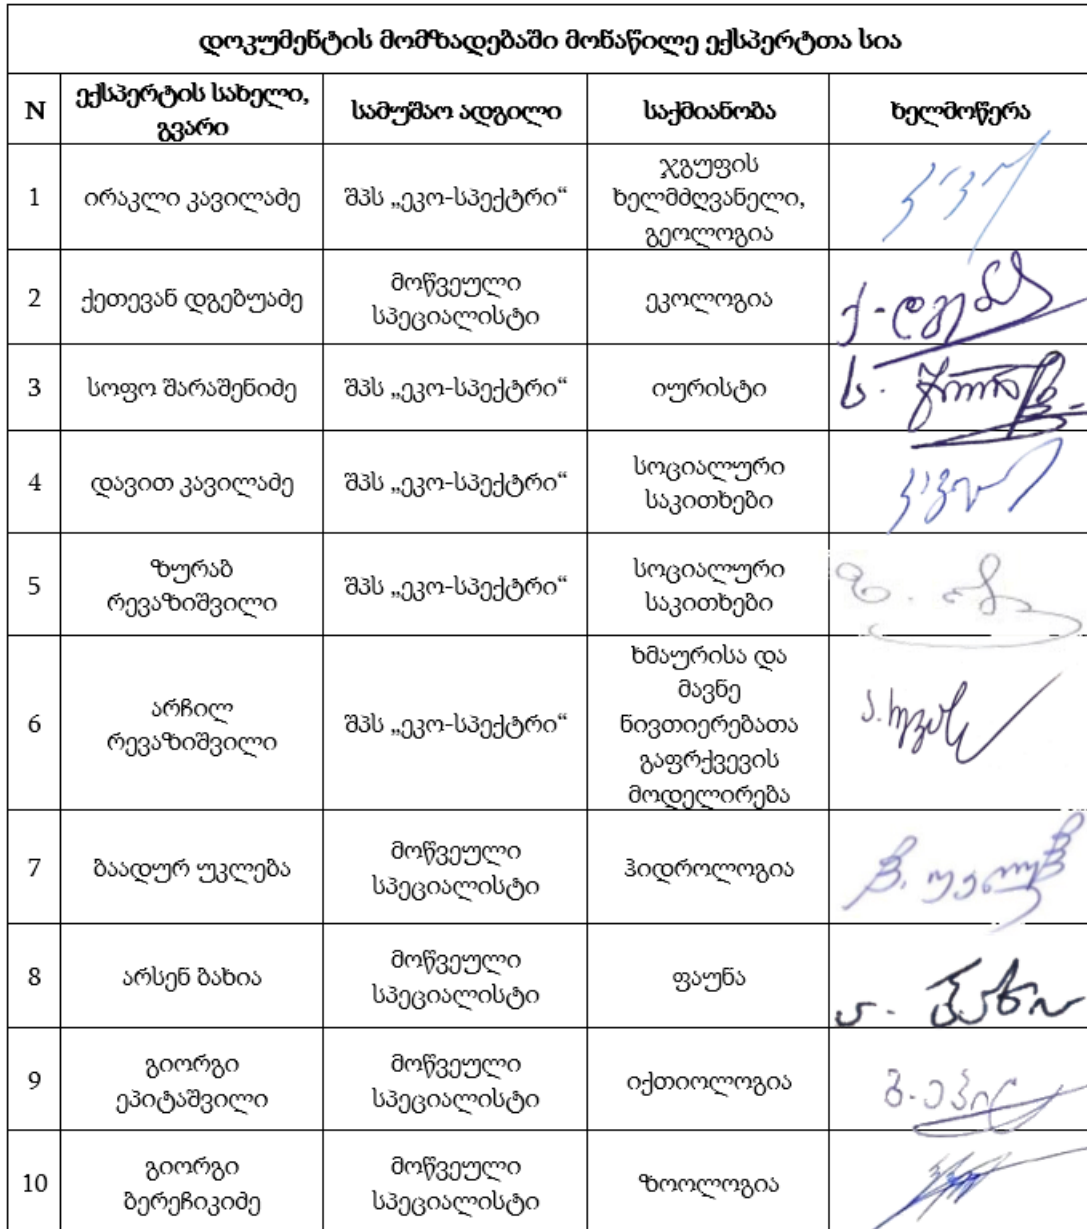 დოკუმენტის მომზადებაში მონაწილე ექსპერტთა სია
N
ექსპერტის სახელი,
გვარი
სამუშაო ადგილი
საქმიანობა
ხელმოწერა
1
ირაკლი კავილაძე
შპს „ეკო-სპექტრი“
ჯგუფის
ხელმძღვანელი,
გეოლოგია
2
ქეთევან დგებუაძე
მოწვეული
სპეციალისტი
ეკოლოგია
3
სოფო შარაშენიძე
შპს „ეკო-სპექტრი“
იურისტი
4
დავით კავილაძე
შპს „ეკო-სპექტრი“
სოციალური
საკითხები
5
ზურაბ
რევაზიშვილი
შპს „ეკო-სპექტრი“
სოციალური
საკითხები
6
არჩილ
რევაზიშვილი
შპს „ეკო-სპექტრი“
ხმაურისა და
მავნე
ნივთიერებათა
გაფრქვევის
მოდელირება
7
ბაადურ უკლება
მოწვეული
სპეციალისტი
ჰიდროლოგია
8
არსენ ბახია
მოწვეული
სპეციალისტი
ფაუნა
9
გიორგი
ეპიტაშვილი
მოწვეული
სპეციალისტი
იქთიოლოგია
10
გიორგი
ბერეჩიკიძე
მოწვეული
სპეციალისტი
ზოოლოგია